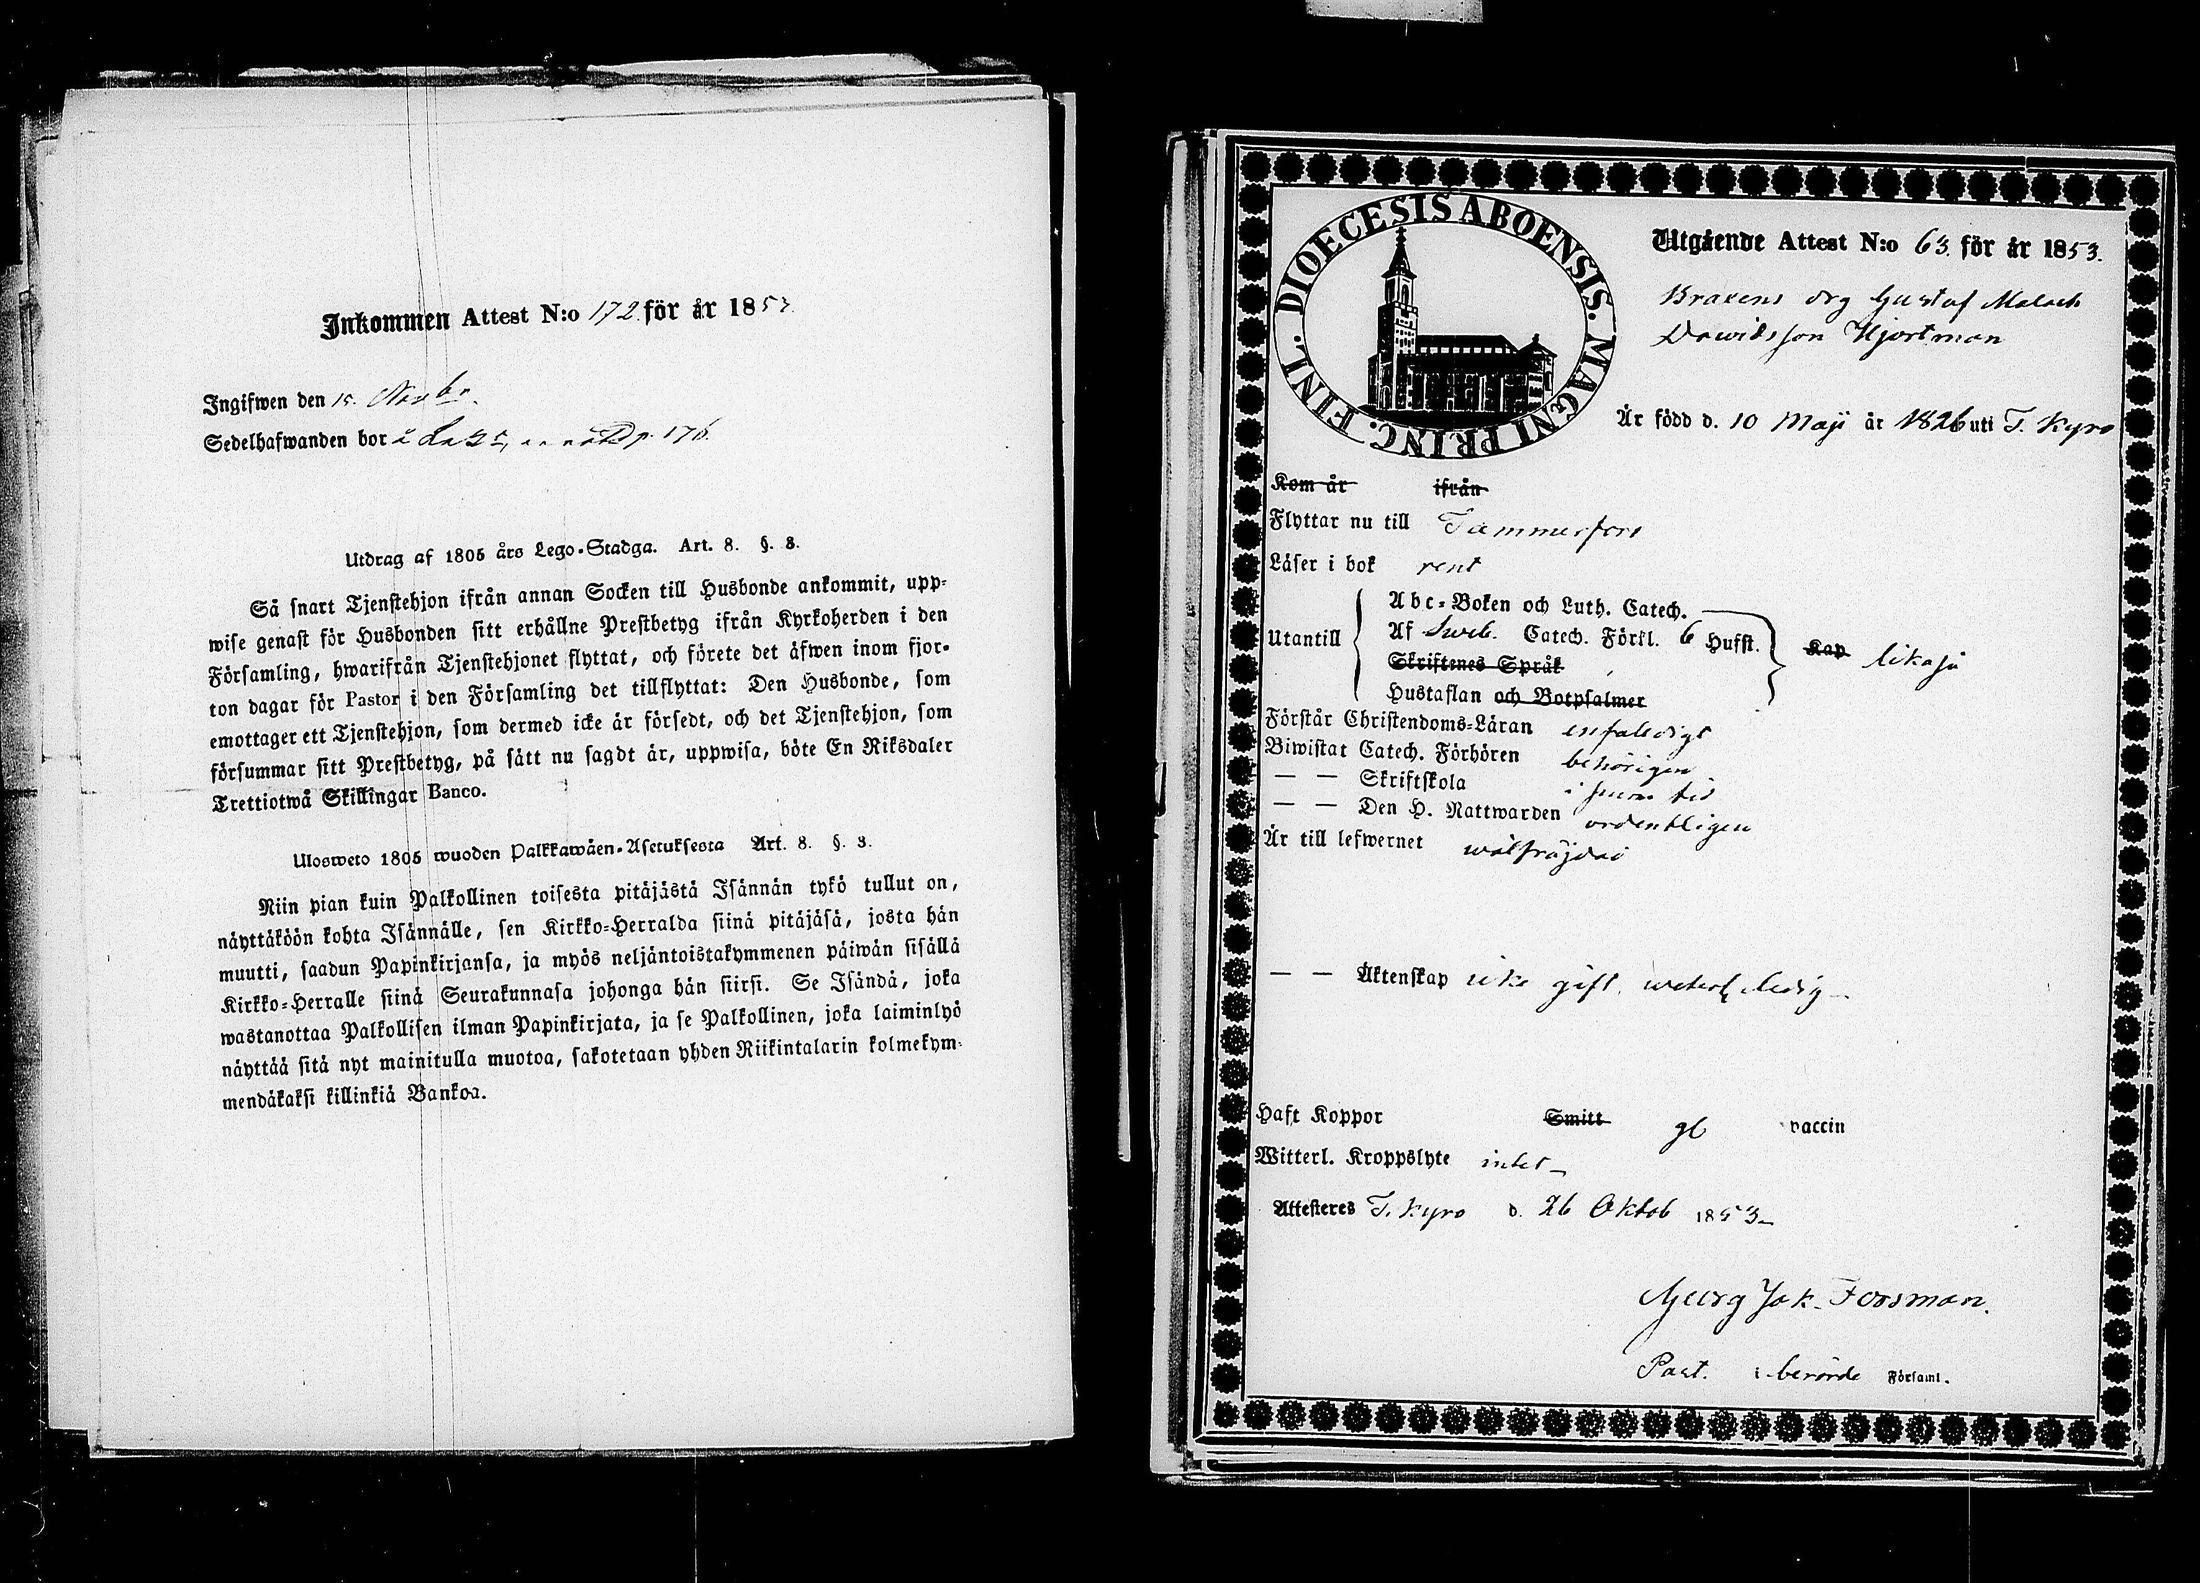 Inkommen Attest N:o 172 för år 1853.
Ingifwen den 15. Novbr.
Sedelhafwanden bor å p. 176.
Utdrag af 1805 års Lego-Stadga. Art. 8. §. 3.
Så snart Tjenstehjon ifrån annan Socken till Husbonde ankommit, upp-
wise genast för Husbonden sitt erhållne Prestbetyg ifrån Kyrkoherden i den
Församling, hwarifrån Tjenstehjonet flyttat, och förete det äfwen inom fjor-
ton dagar för Pastor i den Församling det tillflyttat: Den Husbonde, som
emottager ett Tjenstehjon, som dermed icke är försedt, och det Tjenstehjon, som
försummar sitt Prestbetyg, på sätt nu sagdt är, uppwisa, böte En Riksdaler
Trettiotwå Skillingar Banco.
Ulosweto 1805 wuoden Palkkawäen-Asetuksesta Art. 8. §. 3.
Niin pian kuin Palkollinen toisesta pitäjästä Isännän tykö tullut on,
näyttäköön kohta Isännälle, sen Kirkko-Herralda siinä pitäjäsä, josta hän
muutti, saadun Papinkirjansa, ja myös neljäntoistakymmenen päiwän sisällä
Kirkko-Herralle siinä Seurakunnasa johonga hän siirsi. Se Isändä, joka
wastanottaa Palkollisen ilman Papinkirjata, ja se Palkollinen, joka laiminlyö
näyttää sitä nyt mainitulla muotoa, sakotetaan yhden Riikintalarin kolmekym-
mendäkaksi killinkiä Bankoa.
DIOECESIS ABOENSIS. MAGNI PRINC. FINL.
Utgående Attest N:o 63. för år 1853.
drg Gustaf Malach
Dawidsson Hjortman
Är född d. 10 Maji år 1826 uti T. Kyro
Kom år ifrån
Flyttar nu till Tammerfors
Läser i bok rent
Abc-Boken och Luth. Catech.
Utantill Af Sweb. Catech. Förkl. 6 Hufst. Kap likaså
Skriftenes Språk
Hustaflan och Botpsalmer
Förstår Christendoms-Läran enfaldigt
Biwistat Catech. Förhören behörigen
— — Skriftskola i sinom tid
— — Den H. Nattwarden ordentligen
Är till lefwernet wälfräjdad
— — Äktenskap icke gift, ledig
Haft Koppor Smitt gb vaccin
Witterl. Kroppslyte intet
Attesteres T. Kyro d. 26 Oktob 1853
Georg Jak. Forsman.
Past. i berörde Församl.